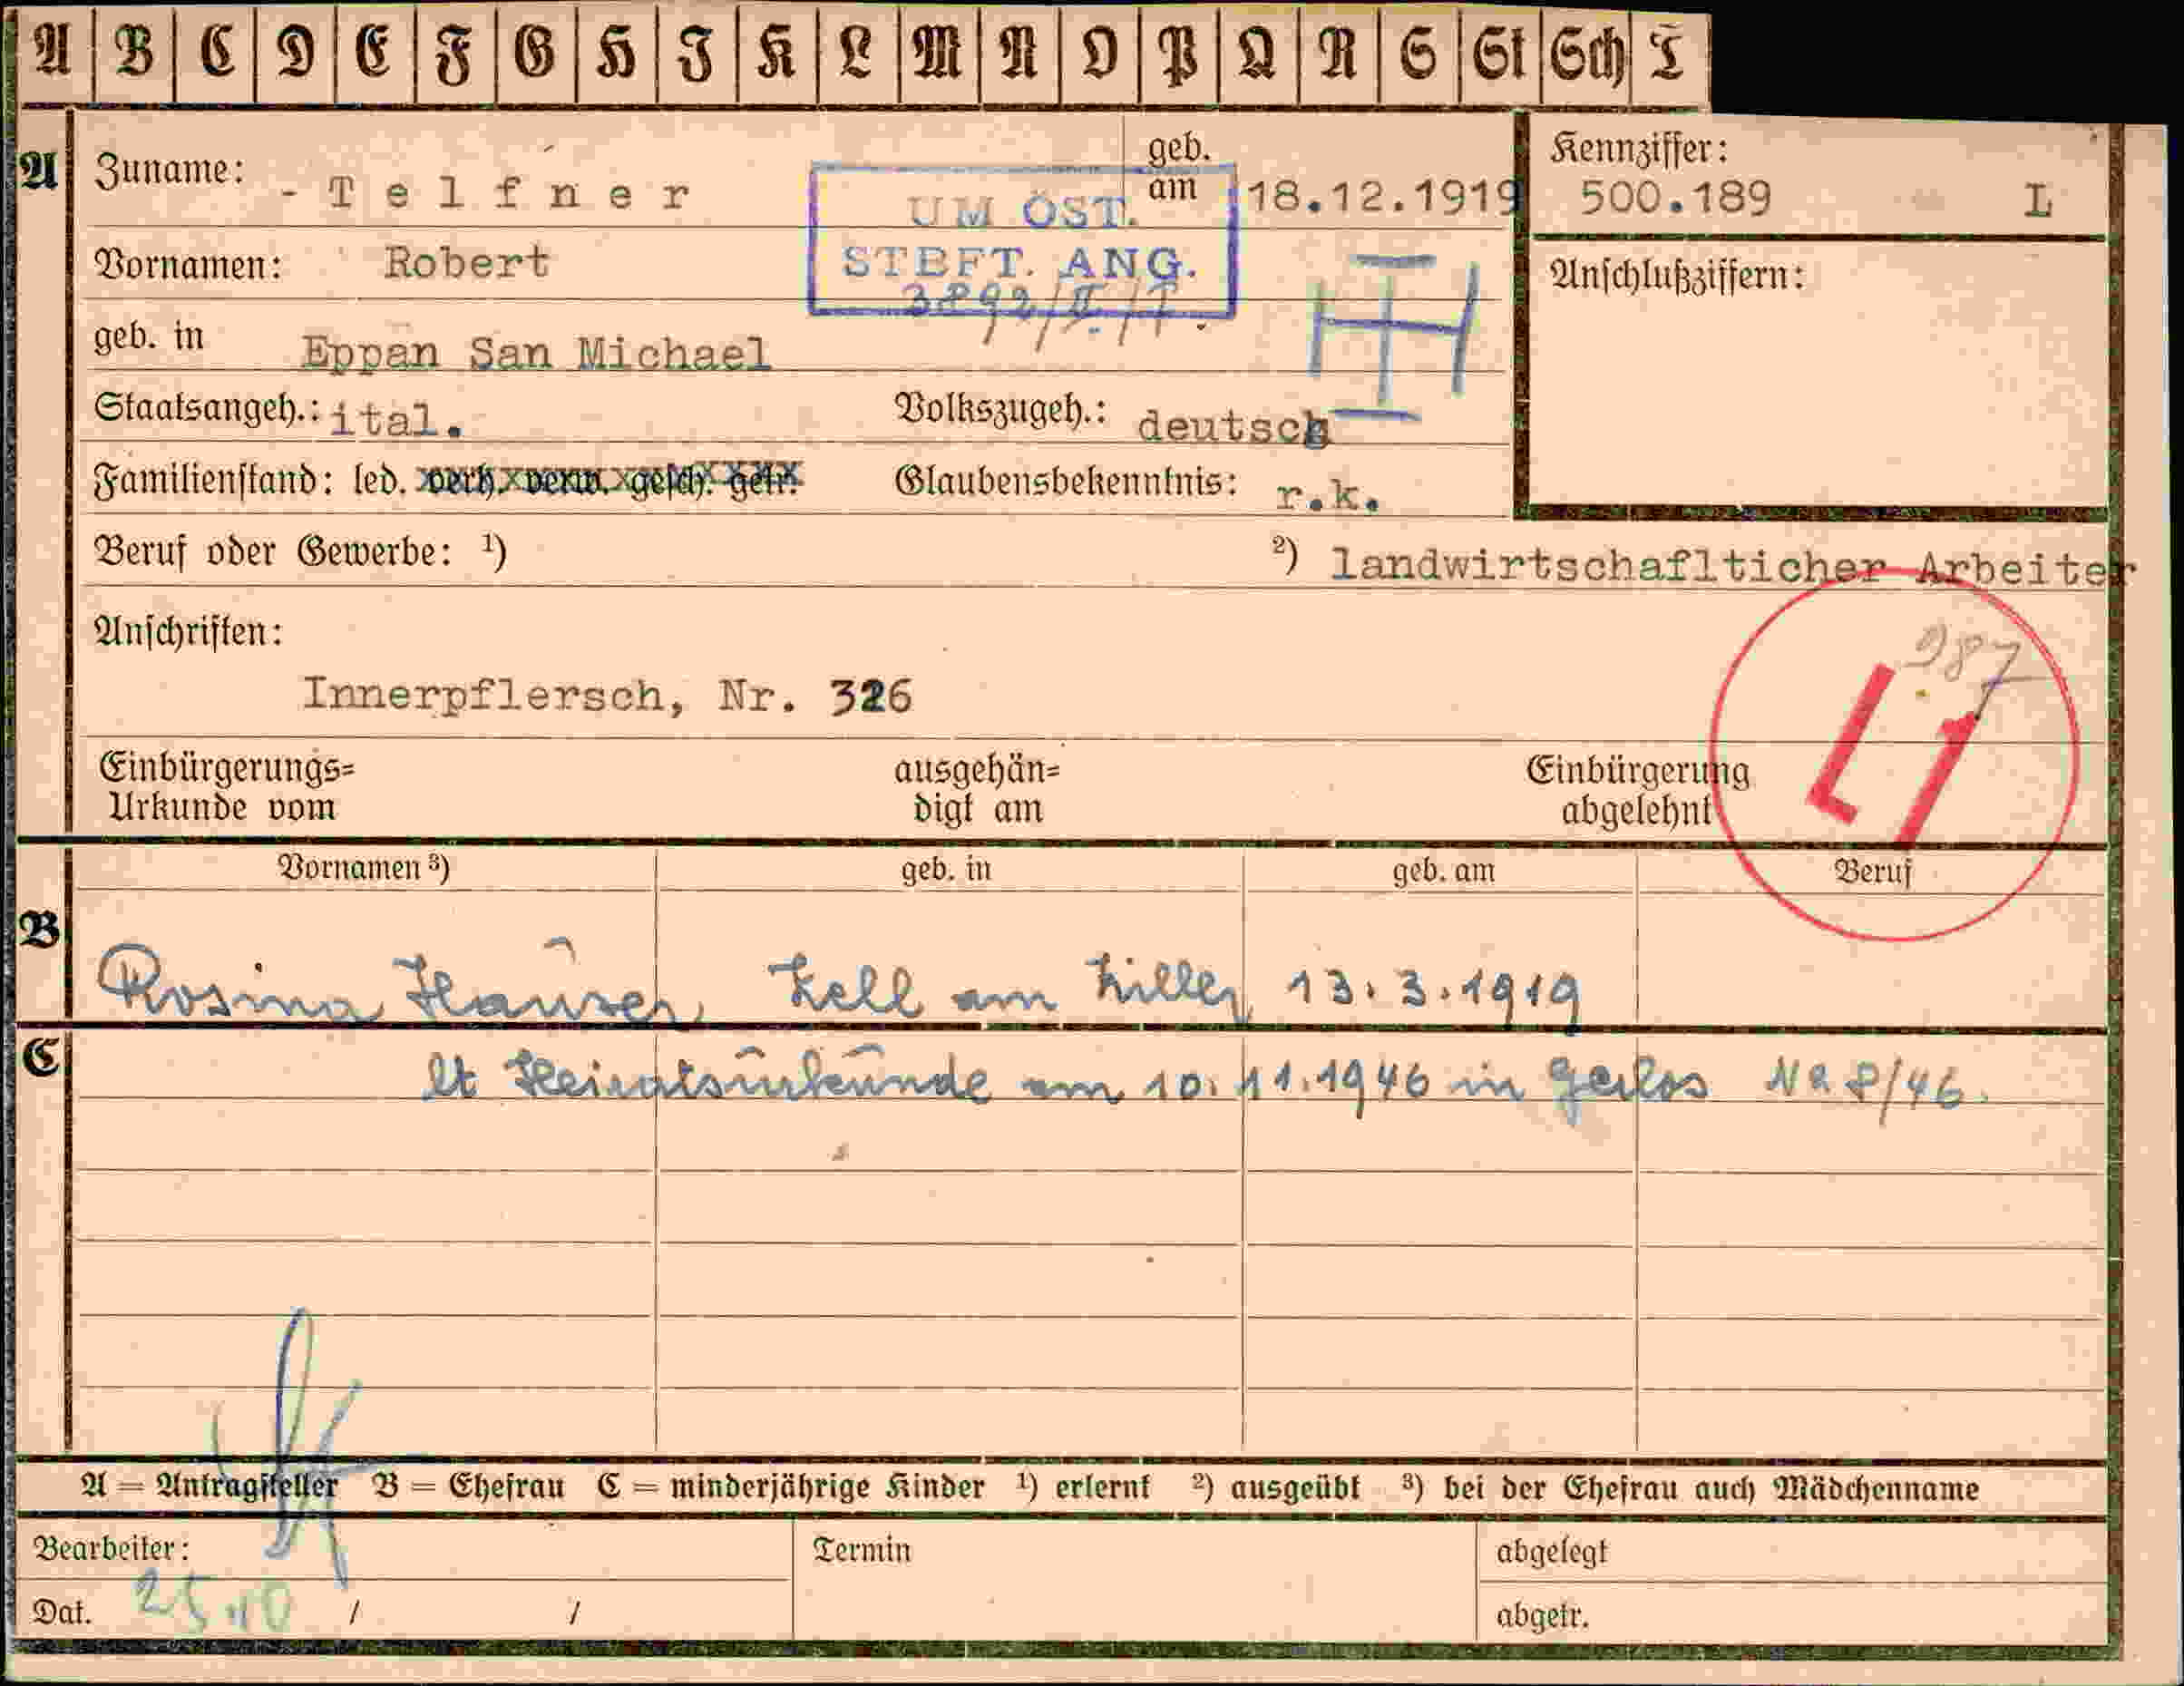 A B C D E F G H J K L M N O P Q R S St Sch T
A
Zuname: - Telfner
geb. am 18.12.1919
Kennziffer:
500.189 L
UM ÖST.
STBFT. ANG.
3892/II./T.
Vornamen: Robert
Anschlußziffern:
geb. in Eppan San Michael
Staatsangeh.: ital. Volkszugeh.: deutsch
Familienstand: led. verh. verw. gesch. getr. Glaubensbekenntnis: r.k.
Beruf oder Gewerbe: ¹) ²) landwirtschaflticher Arbeiter
Anschriften:
987
L1
Innerpflersch, Nr. 326
Einbürgerungs=
Urkunde vom
ausgehän=
digt am
Einbürgerung
abgelehnt
Vornamen ³) geb. in geb. am Beruf
B
Rosina Hauser, Zell am Ziller 13.3.1919
C
lt Heiratsurkunde am 10.11.1946 in Gerlos Nr 8/46.
A = Antragsteller B = Ehefrau C = minderjährige Kinder ¹) erlernt ²) ausgeübt ³) bei der Ehefrau auch Mädchenname
Bearbeiter: Termin abgelegt
Dat. / / abgetr.